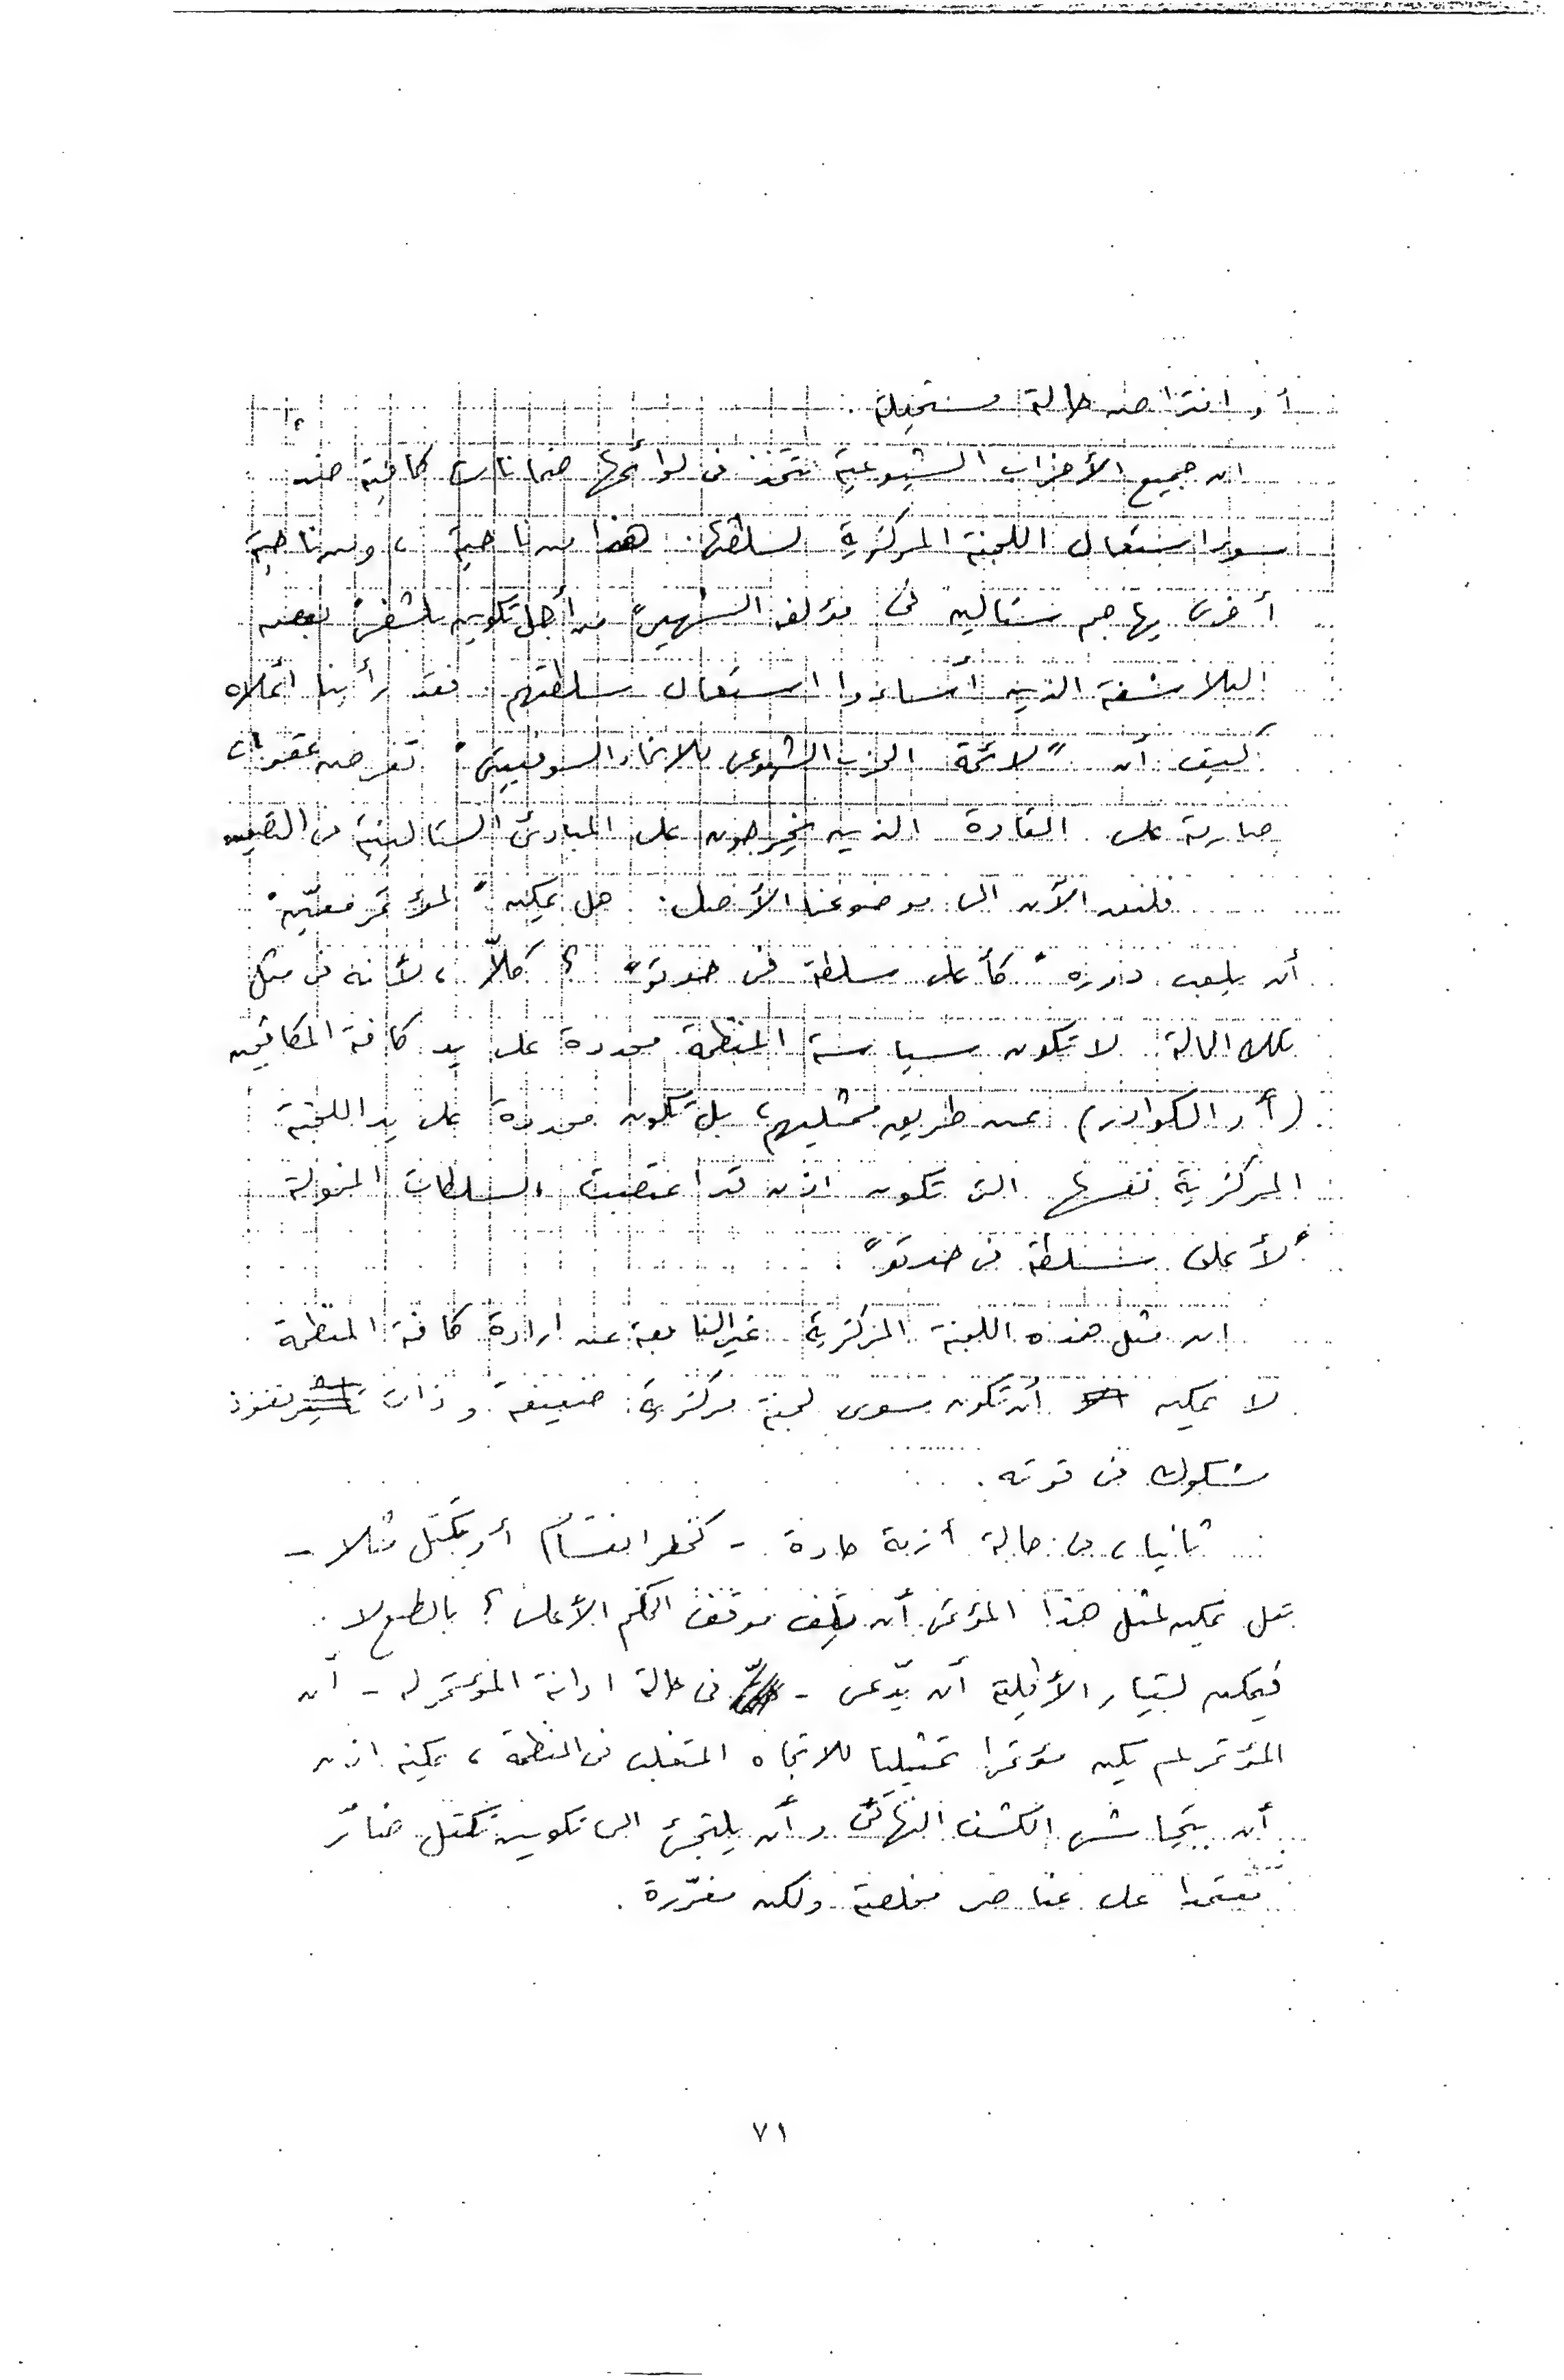 أو افتراض حالة مستحيلة .
ان جميع الأحزاب الشيوعية تتخذ فى لوائحها ضمانات كافية ضد
سوء استعمال اللجنة المركزية لسلطتها . هذا من ناحية ، ومن ناحية
أخرى يهاجم ستالين فى مؤلفه الشهير " من أجل تكوين بلشفى " بعض
البلاشفة الذين أساءوا استعمال سلطتهم . فقد رأينا أعلاه
كيف أن " لائحة الحزب الشيوعى للاتحاد السوفييتى " تفرض عقوبات
صارمة على القادة الذين يخرجون على المبادئ الستالينية فى التعيين
فلنعد الآن الى موضوعنا الأصلى . هل يمكن " لمؤتمر معيّن "
أن يلعب دوره " كأعلى سلطة فى حدتو " ؟ كلاّ ، لأنه فى مثل
تلك الحالة لا تكون سياسة المنظمة محددة على يد كافة المكافحين
( أو الكوادر ) عن طريق ممثليهم ، بل تكون محددة على يد اللجنة
المركزية نفسها التى تكون اذن قد اغتصبت السلطات المخولة
" لأعلى سلطة فى حدتو " .
ان مثل هذه اللجنة المركزية غير النابعة عن ارادة كافة المنظمة
لا يمكن أن تكون سوى لجنة مركزية ضعيفة وذات نفوذ
مشكوك فى قوته .
ثانيا ، فى حالة أزمة حادة - كخطر انقسام أو تكتل مثلا -
هل يمكن لمثل هذا المؤتمر أن يقف موقف الحكم الأعلى ؟ بالطبع لا .
فيمكن لتيار الأقلية أن يدّعى - فى حالة ادانة المؤتمر له - أن
المؤتمر لم يكن مؤتمرا تمثيليا للاتجاه المتغلب فى المنظمة ، يمكنه اذن
أن يتحاشى الكشف النهائى وأن يلتجئ الى تكوين تكتل ضارّ
معتمدا على عناصر مخلصة ولكن مغرّرة .
٧١